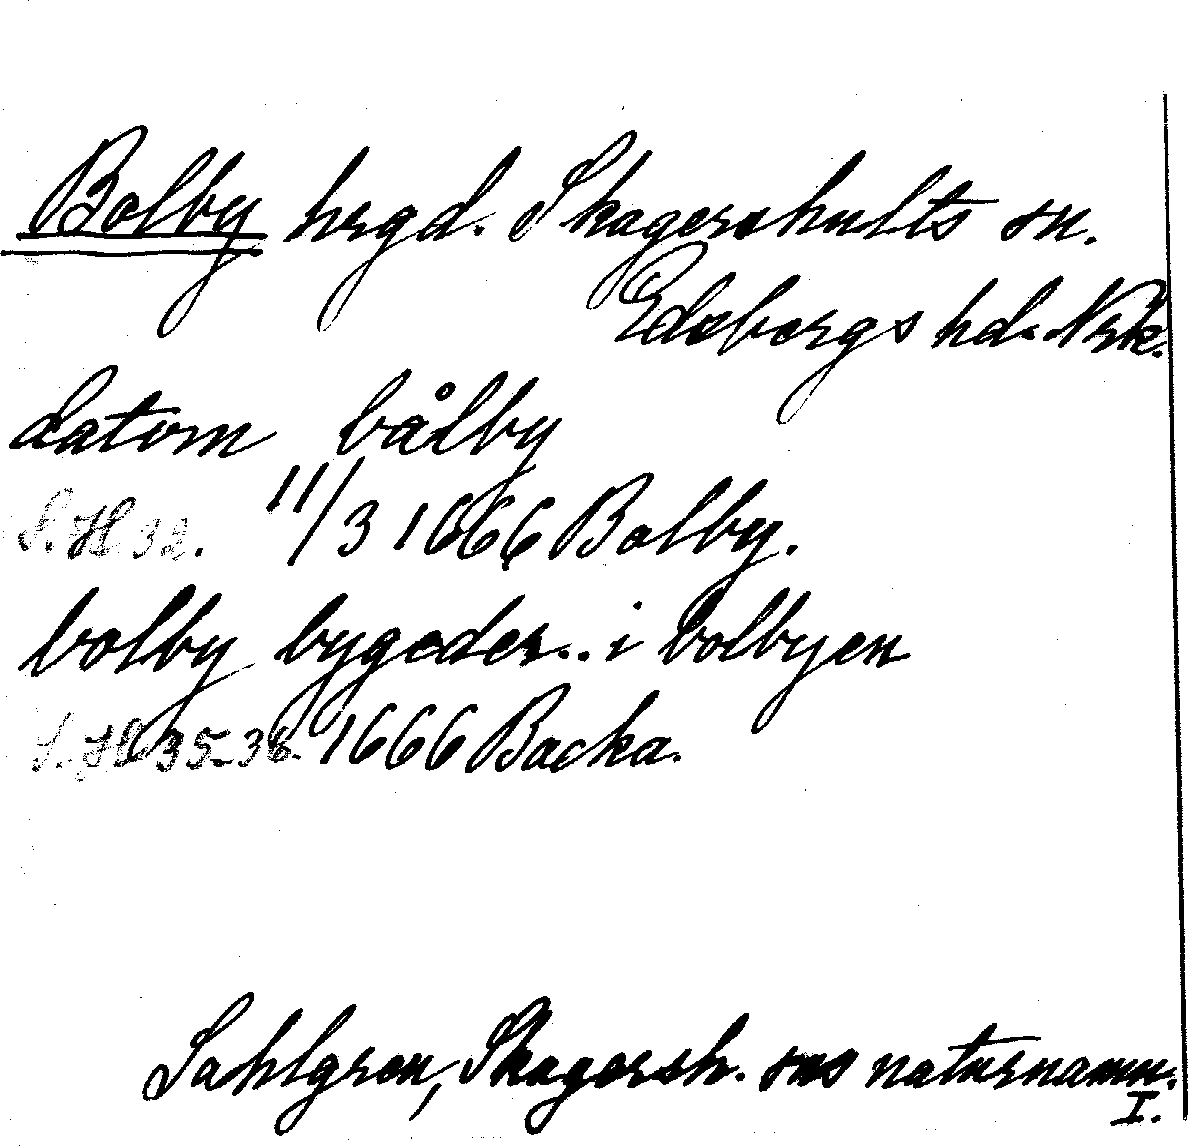 Bolby hrgd. Skagershults sn.
Edsbergs hd. Nrk.
datom bålby
S. H 32. 11/3 1666 Bolby.
bolby bygeder... i bolbyen
S. H 35-36. 1666 Backa.
Sahlgren, Skagersh. sns naturnamn.
I.